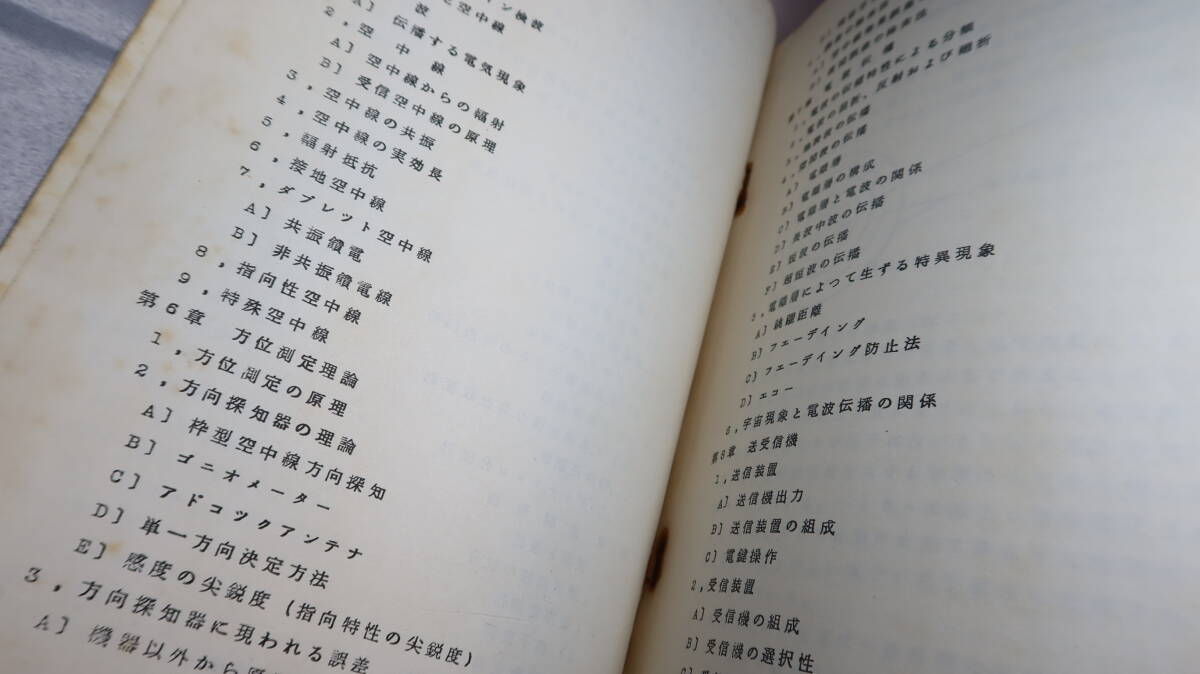 イン検波
と空中線
波
A] 伝播する電気現象
2,空中線
A] 空中線からの輻射
B] 受信空中線の原理
3,空中線の共振
4,空中線の実効長
5,輻射抵抗
6,接地空中線
7,ダブレット空中線
A] 共振饋電
B] 非共振饋電線
8,指向性空中線
9,特殊空中線
第6章 方位測定理論
1,方位測定の原理
2,方向探知器の理論
A] 枠型空中線方向探知
B] ゴニオメーター
C] アドコックアンテナ
D] 単一方向決定方法
E] 感度の尖鋭度(指向特性の尖鋭度)
3,方向探知器に現われる誤差
A] 機器以外から
による分類
反射および廻折
の伝播
4,空間波の伝播
A] 電離層
B] 電離層の構成
C] 電離層と電波の関係
D] 長波中波の伝播
E] 短波の伝播
F] 超短波の伝播
5,電離層によって生ずる特異現象
A] 跳躍距離
B] フェーデイング
C] フェーデイング防止法
D] エコー
6,宇宙現象と電波伝播の関係
第8章 送受信機
1,送信装置
A] 送信機出力
B] 送信装置の組成
C] 電鍵操作
2,受信装置
A] 受信機の組成
B] 受信機の選択性